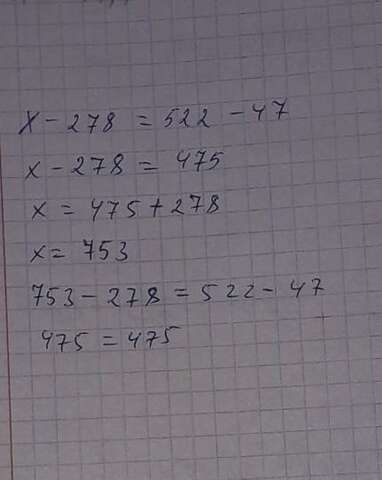 x - 278 = 522 - 47
x - 278 = 475
x = 475 + 278
x = 753
753 - 278 = 522 - 47
475 = 475